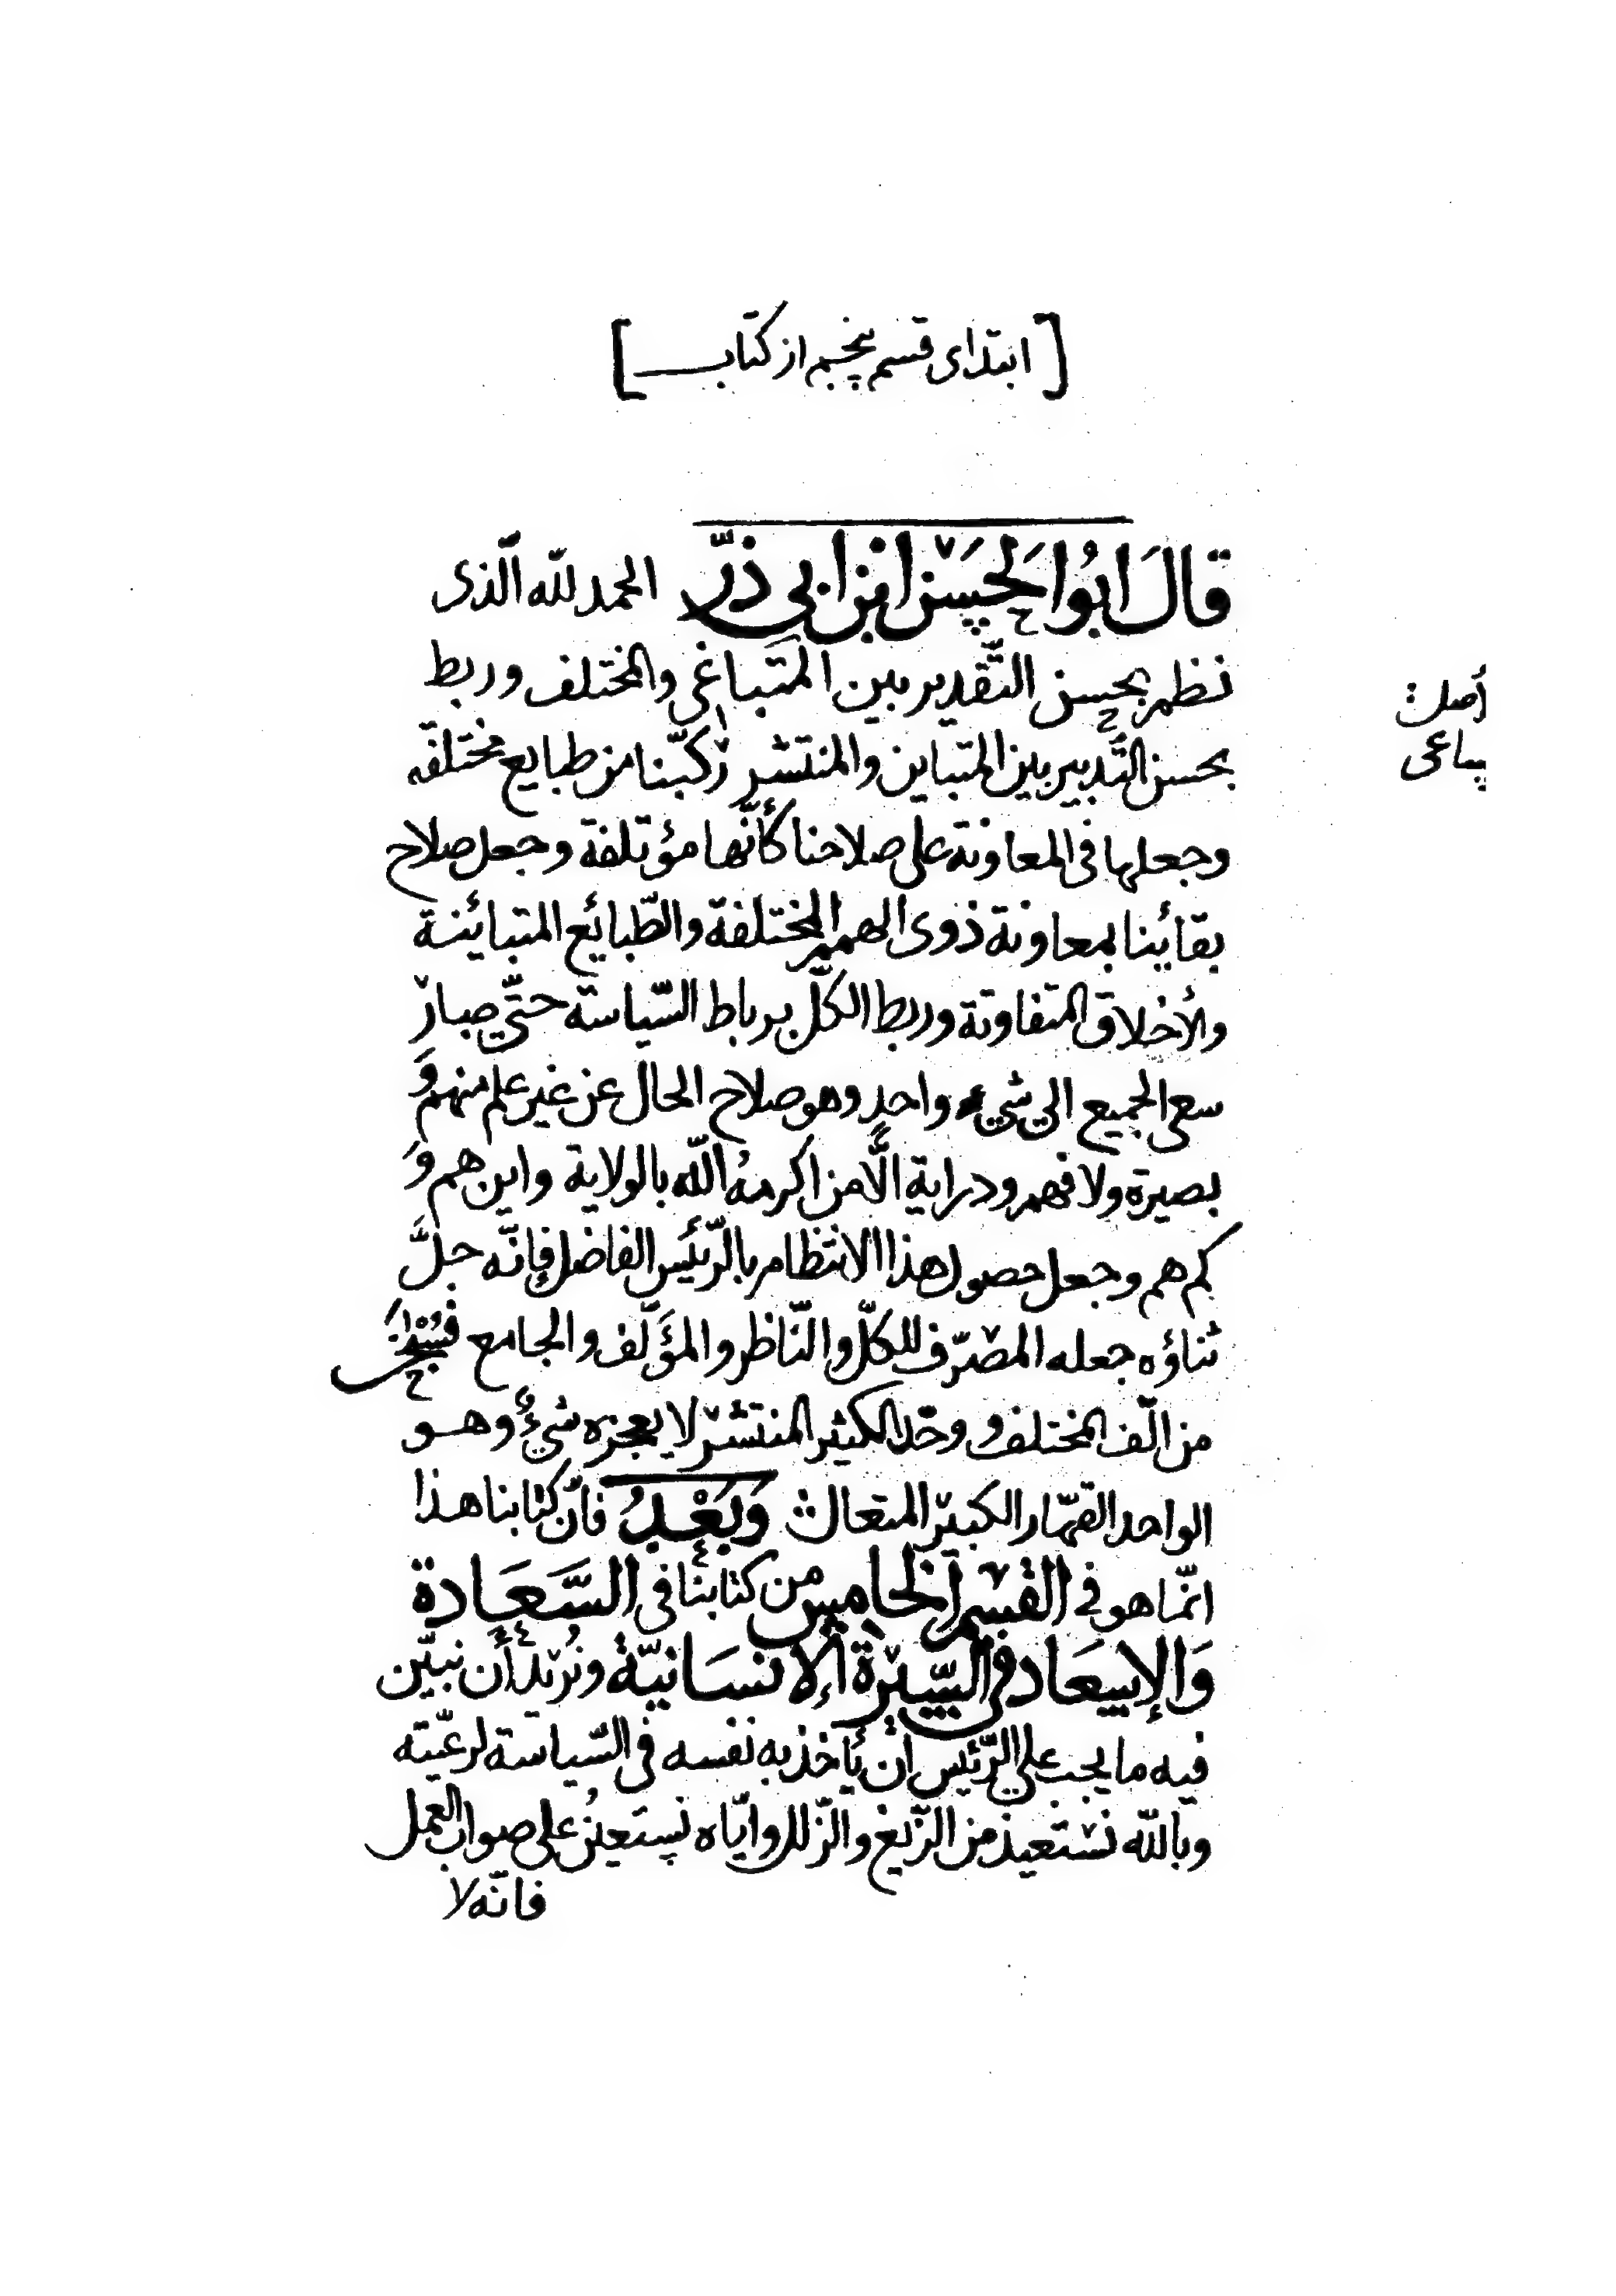 [ابتدای قسم پنجم از کتاب]
قَالَ ابُوالحَسَن ابن ابي ذرّ الحمد للّه الّذى
نظم بحسن التّقدير بين المتباغي والمختلف وربط
بحسن التّدبير بين المتباين والمنتشر ركّبنا من طبايع مختلفه
وجعلها فى المعاونة على صلاحنا كأنّها مؤتلفة وجعل صلاح
بقائنا بمعاونة ذوى الهمم المختلفة والطّبائع المتبائنة
والأخلاق المتفاوتة وربط الكلّ برباط السّياسة حتّي صار
سعى الجميع الي شيء واحدٍ وهو صلاح الحال عن غير علم منهم وَ
بصيرة ولا فهم ودراية الّا من اكرمهُ اللّه بالولاية واين هم وَ
كم هم وجعل حصول هذا الانتظام بالرّئيس الفاضل فإنّه جلَّ
ثناؤه جعله المصرّف للكلّ والنّاظر والمؤَلّف والجامع فسُبْحَان
من الّف المختلف و وحّد الكثير المنتشر لا يعجزه شيءٌ وهو
الواحد القهّار الكبير المتعال وَبَعْدُ فأنّ كتابنا هذا
انّما هو في القسم الخامس من كتابنا فى السَّعَادة
وَالإسعَاد في السّيرة الإنسَانيّة ونُريد أن نبيّن
فيه ما يجب علي الرّئيس ان يأخذ به نفسه فى السّياسة لرعيّته
وبالله نستعيذ من الزّيغ والزّلل وايّاه نستعينُ على صواب العمل
فانّه لا
أصل:
بباعى